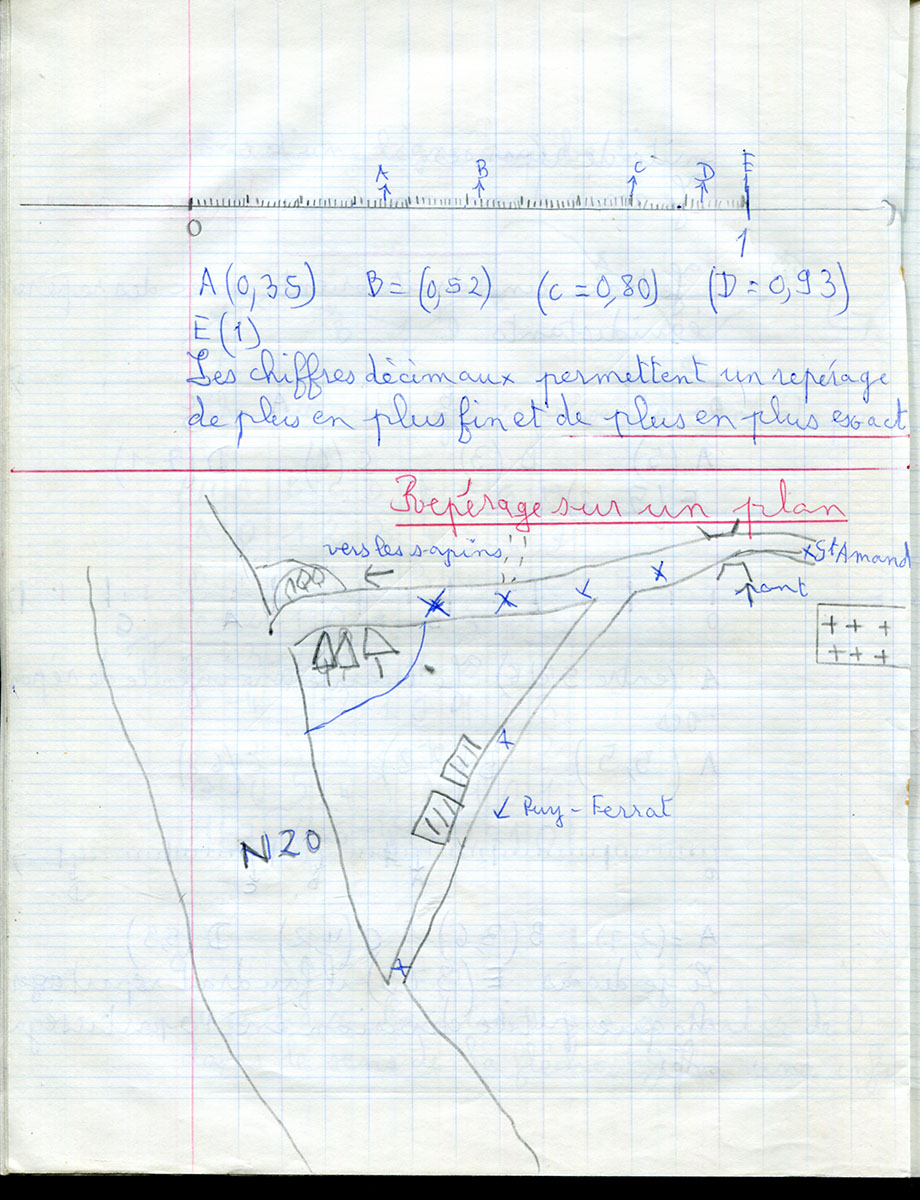 A B C D E
0 1
A (0,35) B = (0,52) (C = 0,80) (D = 0,93)
E (1)
Les chiffres décimaux permettent un repérage
de plus en plus fin et de plus en plus exact
Repérage sur un plan
vers les sapins
St Amand
pont
Puy-Ferrat
N20